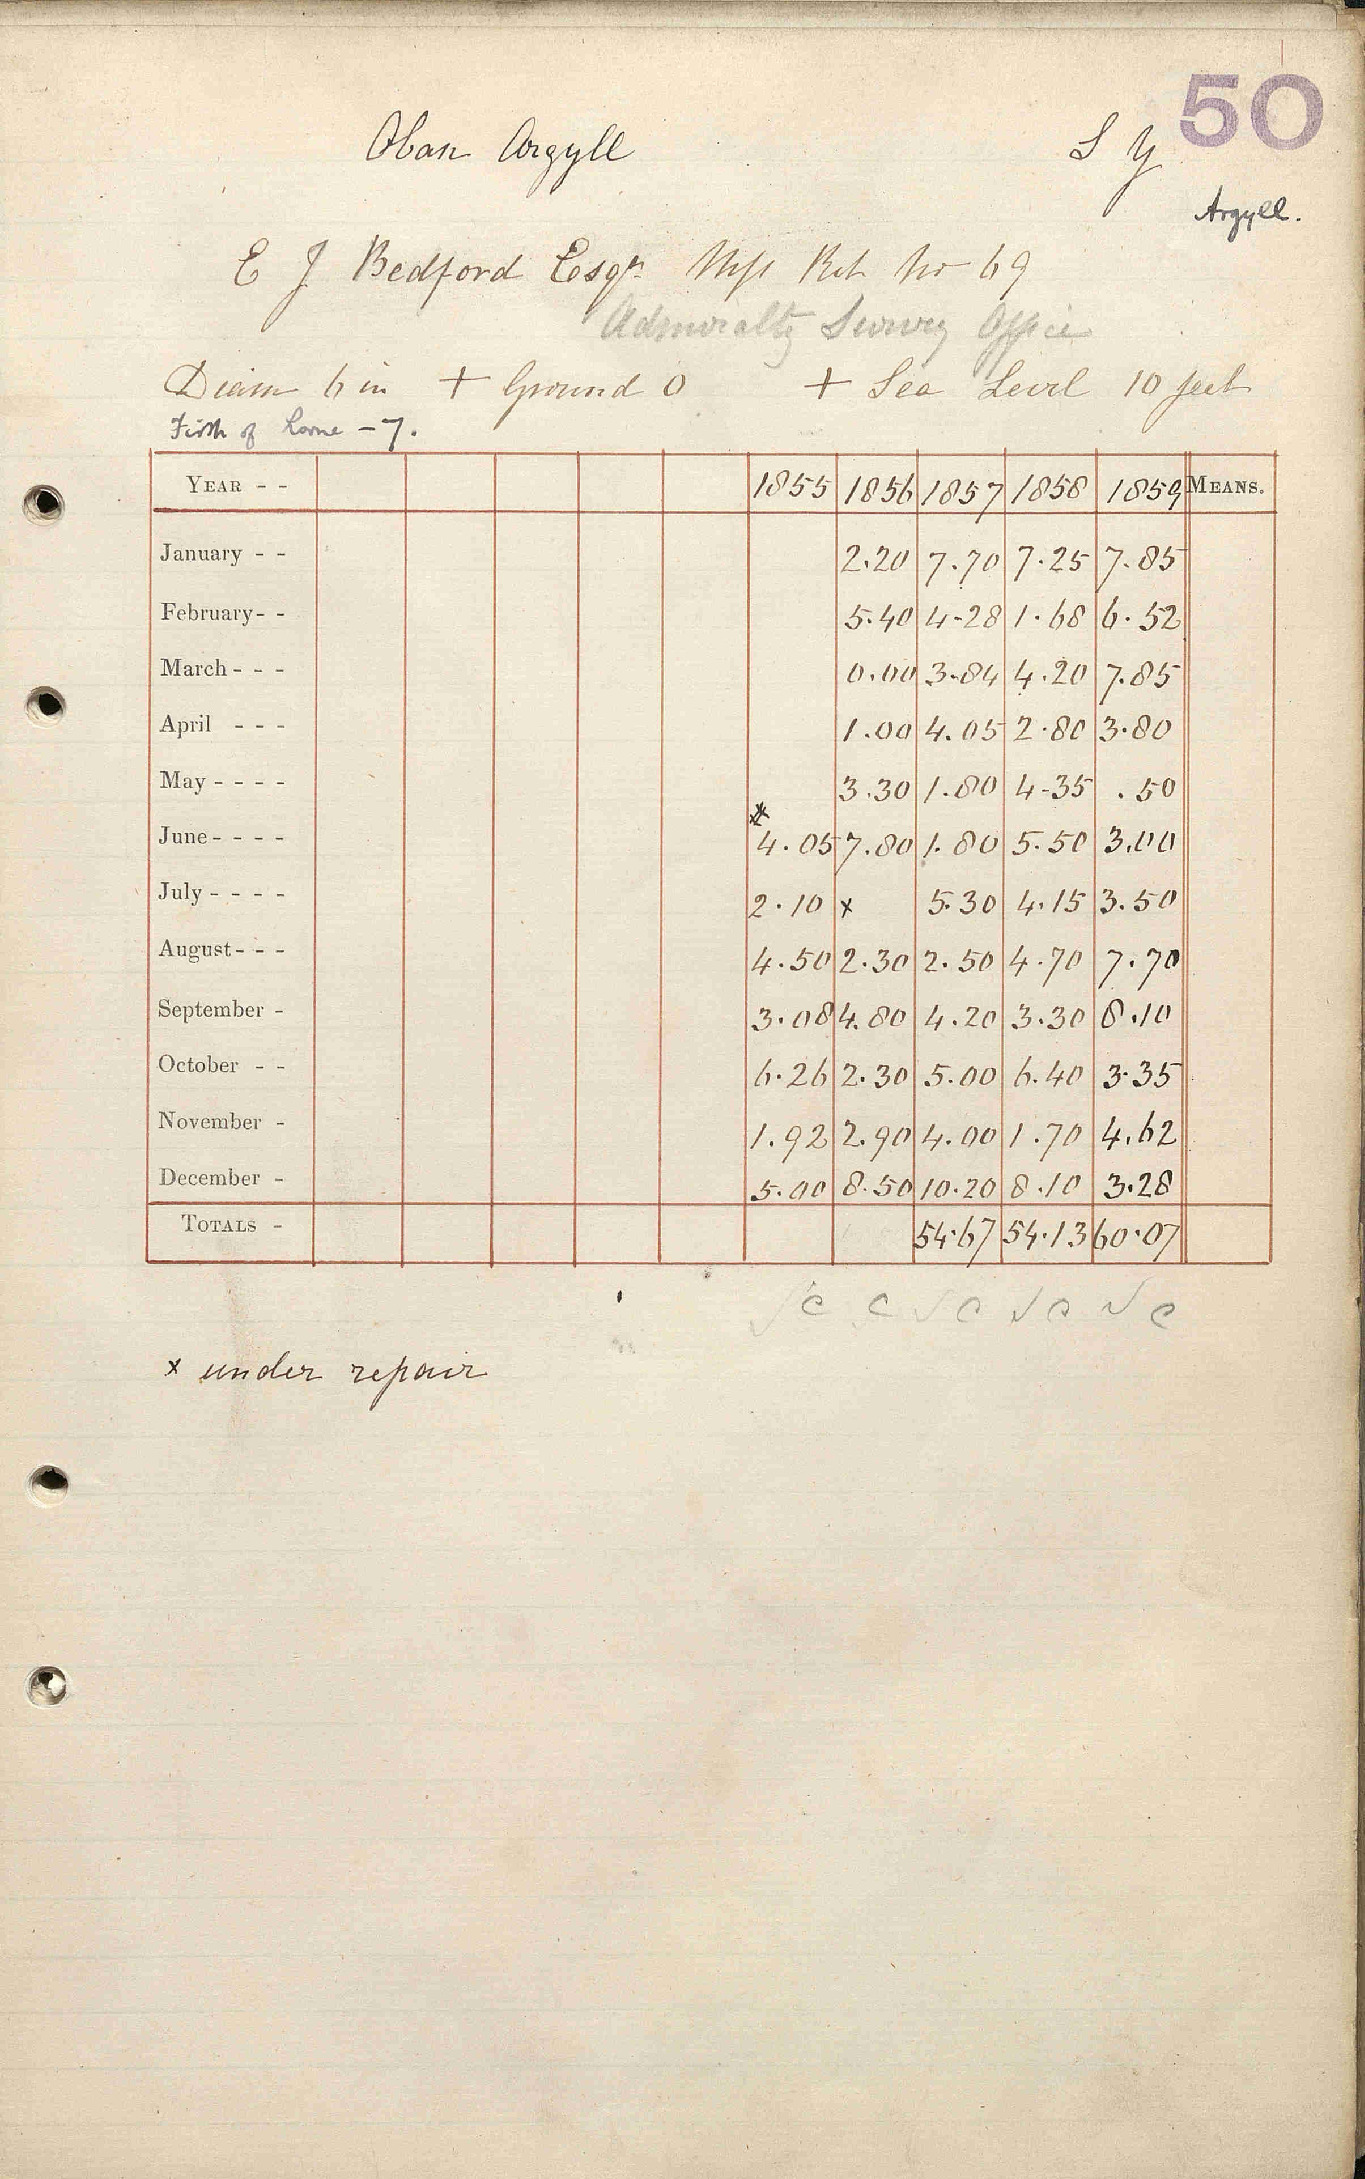 50
Oban Argyll S Y
Argyll.
E J Bedford Esqr Mss Ret No 69
Admiralty Survey Office
Diam 6 in + Ground 0 + Sea Level 10 feet
Firth of Lorne - 7.
YEAR - - 1855 1856 1857 1858 1859 MEANS.
January - - 2.20 7.70 7.25 7.85
February - - 5.40 4.28 1.68 6.52
March - - - 0.00 3.84 4.20 7.85
April - - - 1.00 4.05 2.80 3.80
May - - - - 3.30 1.80 4.35 .50
June - - - - 4.05 7.80 1.80 5.50 3.00
July - - - - 2.10 x 5.30 4.15 3.50
August - - - 4.50 2.30 2.50 4.70 7.70
September - 3.08 4.80 4.20 3.30 8.10
October - - 6.26 2.30 5.00 6.40 3.35
November - 1.92 2.90 4.00 1.70 4.62
December - 5.00 8.50 10.20 8.10 3.28
TOTALS - 54.67 54.13 60.07
√c c √c √c √c
x under repair